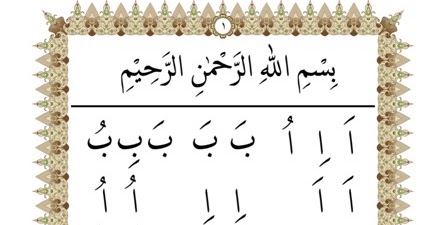 ١
بِسْمِ اللهِ الرَّحْمٰنِ الرَّحِيْمِ
اَ اِ اُ بَ بَ بَ بِ بُ
اَ اَ اِ اِ اُ اُ